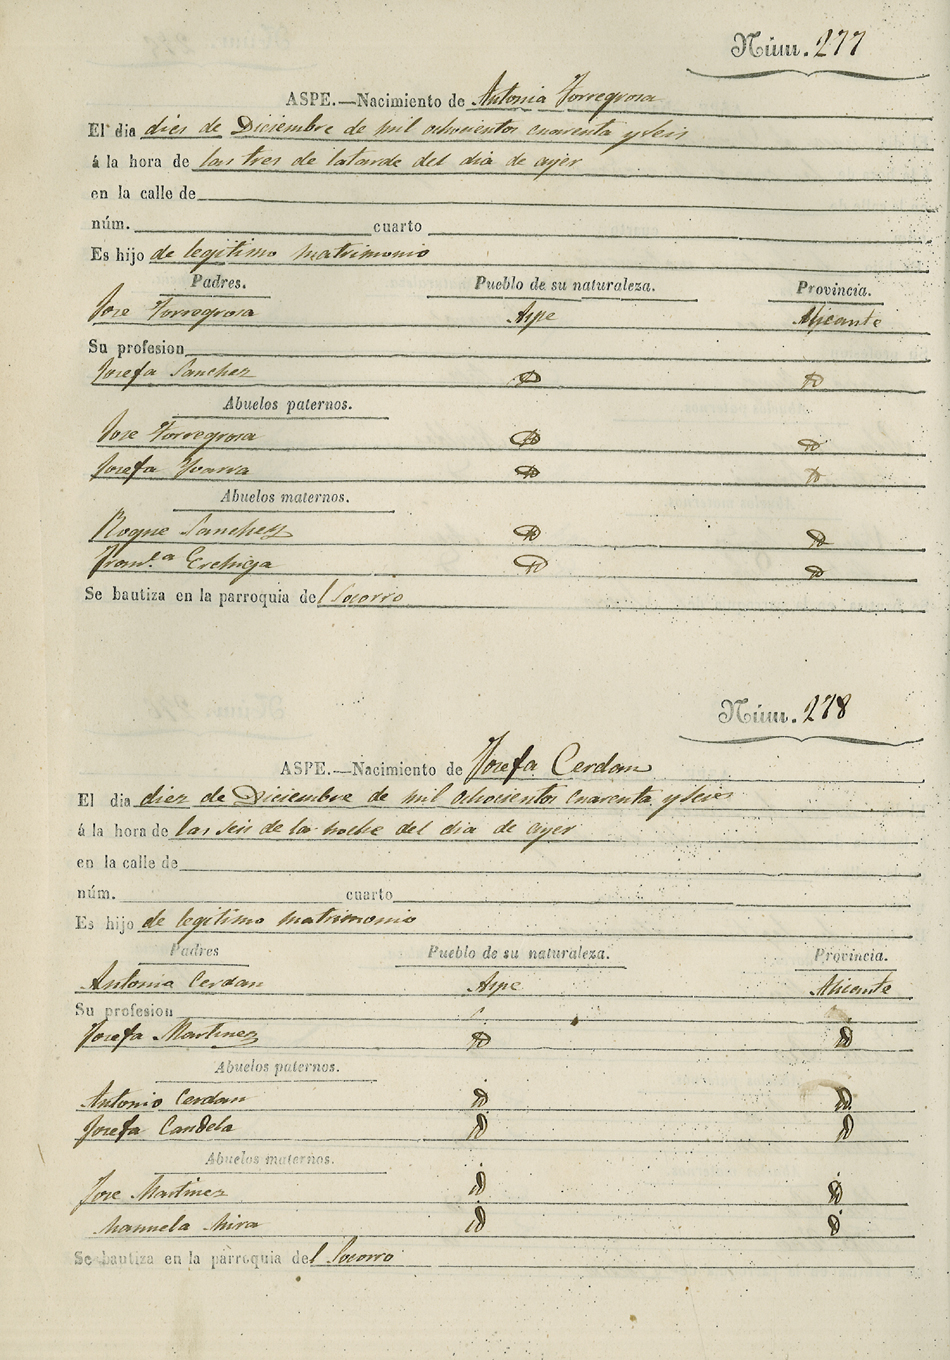 Núm. 277
ASPE.—Nacimiento de Antonia Torregrosa
El dia dies de Diciembre de mil ochocientos cuarenta y seis
á la hora de las tres de latarde del dia de ayer
en la calle de
núm. cuarto
Es hijo de legitimo matrimonio
Padres. Pueblo de su naturaleza. Provincia.
Jose Torregrosa Aspe Alicante
Su profesion
Josefa Sanchez
Abuelos paternos.
Jose Torregrosa
Josefa Yvarra
Abuelos maternos.
Roque Sanchez
Fran.ca
Se bautiza en la parroquia del Socorro
Núm. 278
ASPE.—Nacimiento de Josefa Cerdan
El dia diez de Diciembre de mil ochocientos cuarenta y seis
á la hora de las seis de la noche del dia de ayer
en la calle de
núm. cuarto
Es hijo de legitimo matrimonio
Padres Pueblo de su naturaleza. Provincia.
Antonio Cerdan Aspe Alicante
Su profesion
Josefa Martinez
Abuelos paternos.
Antonio Cerdan
Josefa Candela
Abuelos maternos.
Jose Martinez
Manuela Mira
Se bautiza en la parroquia del Socorro